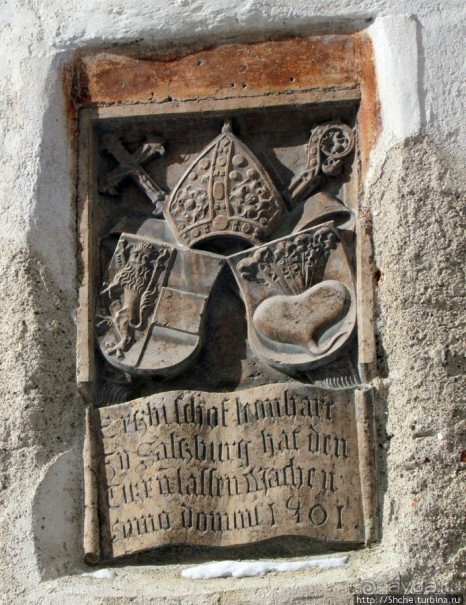 Ertzbischof leonhart
zu Salzburg hat den
Turn lassen Machen
anno domini 1501.
© http://Shche.turbina.ru/